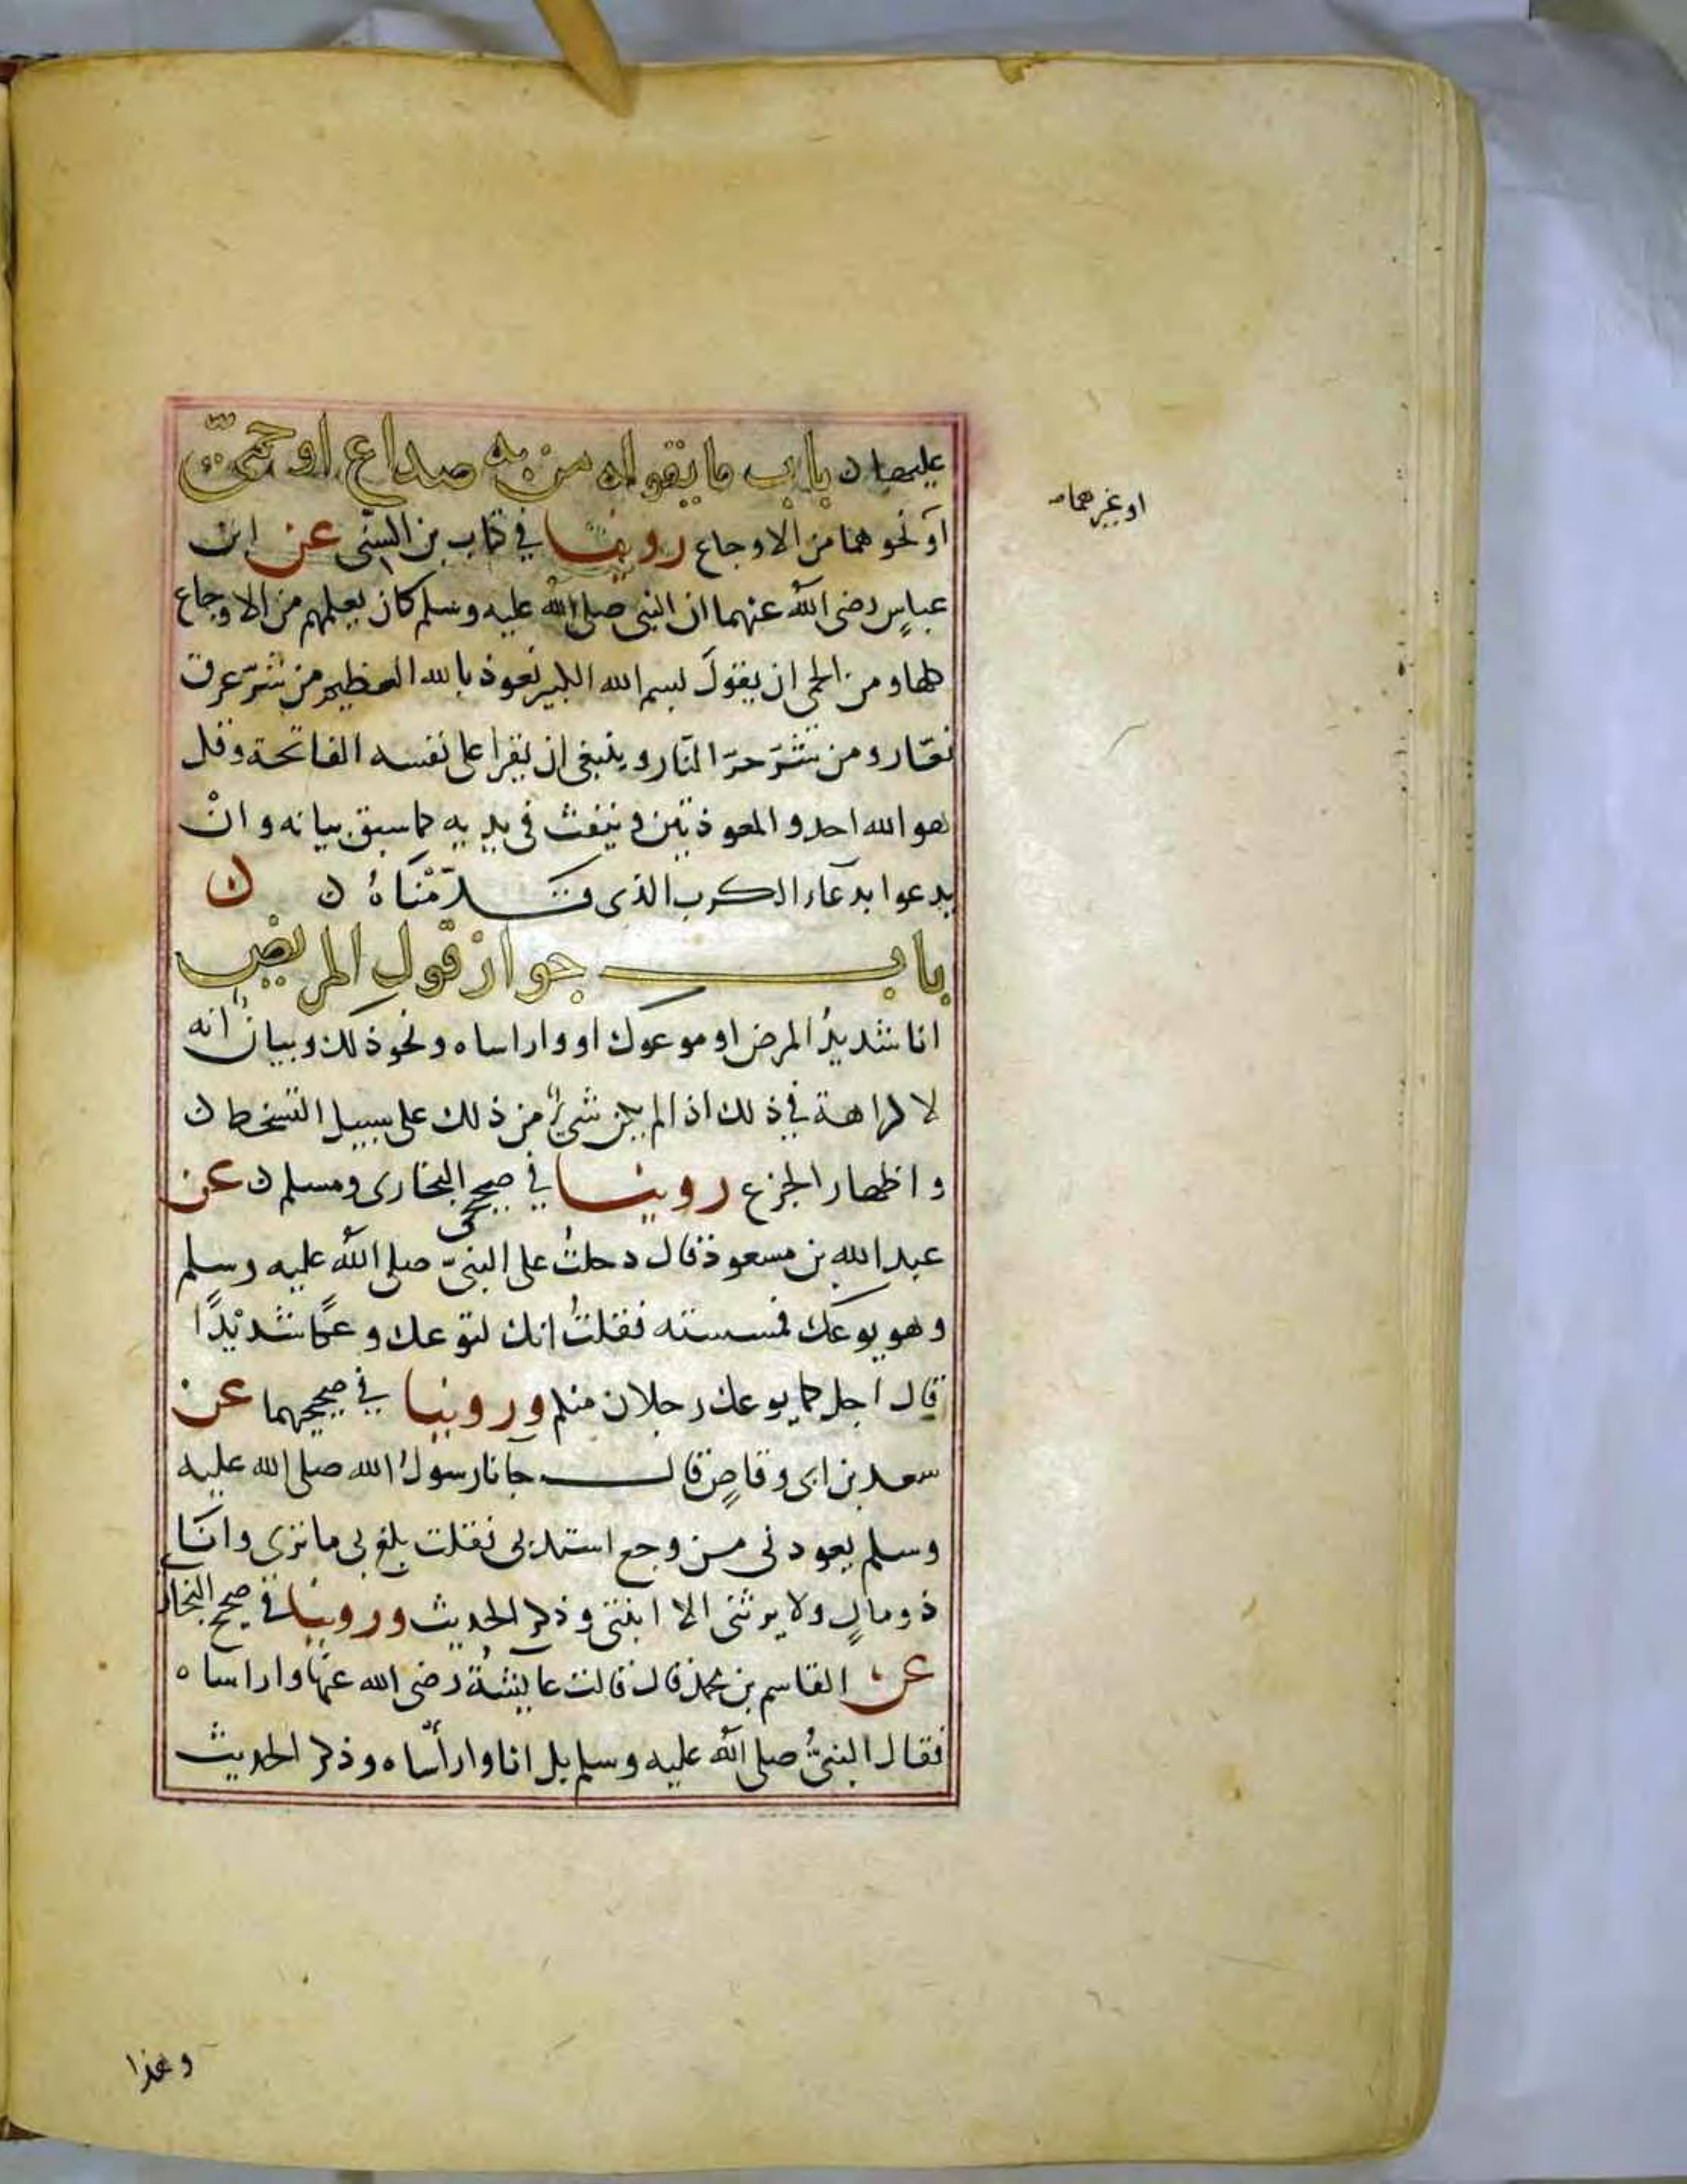 عليها ن باب ما يقوله من به صداع او حمى
او نحوهما من الاوجاع روينا في كتاب بن السني عن ابن
عباس رضي الله عنهما ان النبي صلى الله عليه وسلم كان يعلمهم من الاوجاع
كلها ومن الحمى ان يقول بسم الله الكبير نعوذ بالله العظيم من شر عرق
نعار ومن شر حر النار وينبغي ان يقرا على نفسه الفاتحة وقل
هو الله احد والمعوذتين وينفث في يديه كما سبق بيانه وان
يدعوا بدعاء الكرب الذي قدمناه ن ن
باب جواز قول المريض
انا شديد المرض او موعوك او واراساه ونحو ذلك وبيان انه
لا كراهة في ذلك اذا لم يكن شيء من ذلك على سبيل التسخط ن
واظهار الجزع روينا في صحيحي البخاري ومسلم ن عن
عبد الله بن مسعود قال دخلت على النبي صلى الله عليه وسلم
وهو يوعك فمسسته فقلت انك لتوعك وعكا شديدا
قال اجل كما يوعك رجلان منكم وروينا في صحيحيهما عن
سعد بن ابي وقاص قال جانا رسول الله صلى الله عليه
وسلم يعودني من وجع اشتد بي فقلت بلغ بي ما ترى وانا
ذو مال ولا يرثني الا ابنتي وذكر الحديث وروينا في صحيح البخار
عن القاسم بن محمد قال قالت عايشة رضي الله عنها واراساه
فقال النبي صلى الله عليه وسلم بل انا وارأساه وذكر الحديث
او غيرهما
وهذا